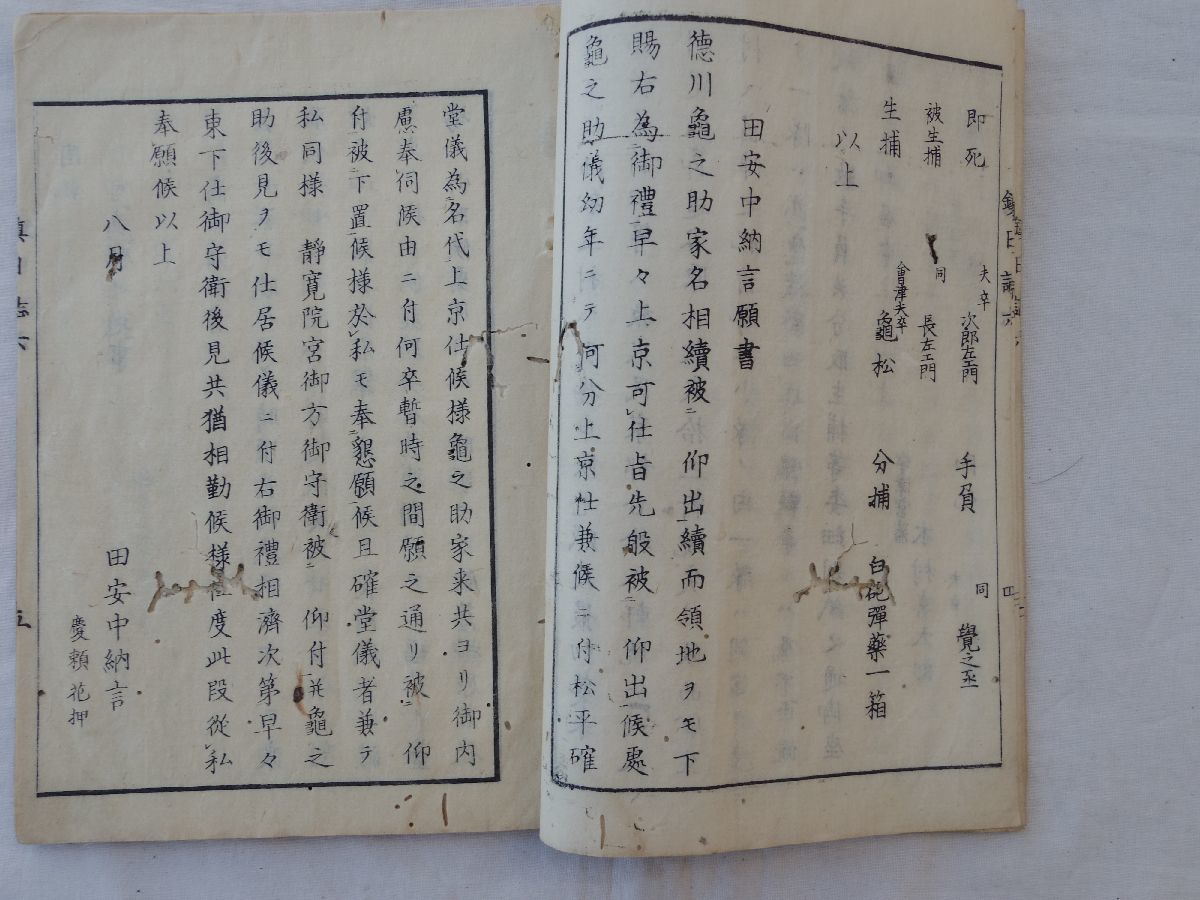 即死 夫卒 次郎左エ門 手負 同 覺之丞
被生捕 同 長左エ門
生捕 會津夫卒 龜松 分捕 白砲彈藥一箱
以上
田安中納言願書
德川龜之助家名相續被ニ仰出一續而領地ヲモ下
賜右為御禮早々上京可仕旨先般被ニ仰出一候處
龜之助儀幼年ニテ何分上京仕兼候ニ付松平確
堂儀為名代上京仕候様龜之助家来共ヨリ御内
慮奉伺候由ニ付何卒暫時之間願之通リ被ニ仰
付被下置候様於私モ奉懇願候且確堂儀者兼テ
私同様 靜寬院宮御方御守衛被ニ仰付并龜之
助後見ヲモ仕居候儀ニ付右御禮相濟次第早々
東下仕御守衛後見共猶相勤候様仕度此段從私
奉願候以上
八月
田安中納言
慶頼花押
鎮日誌六
五